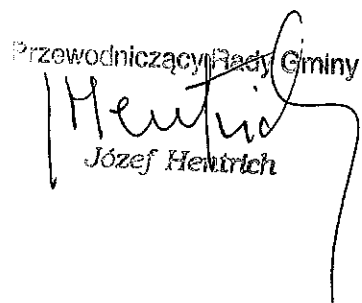 Przewodniczący Rady Gminy
Hentrich
Józef Hentrich